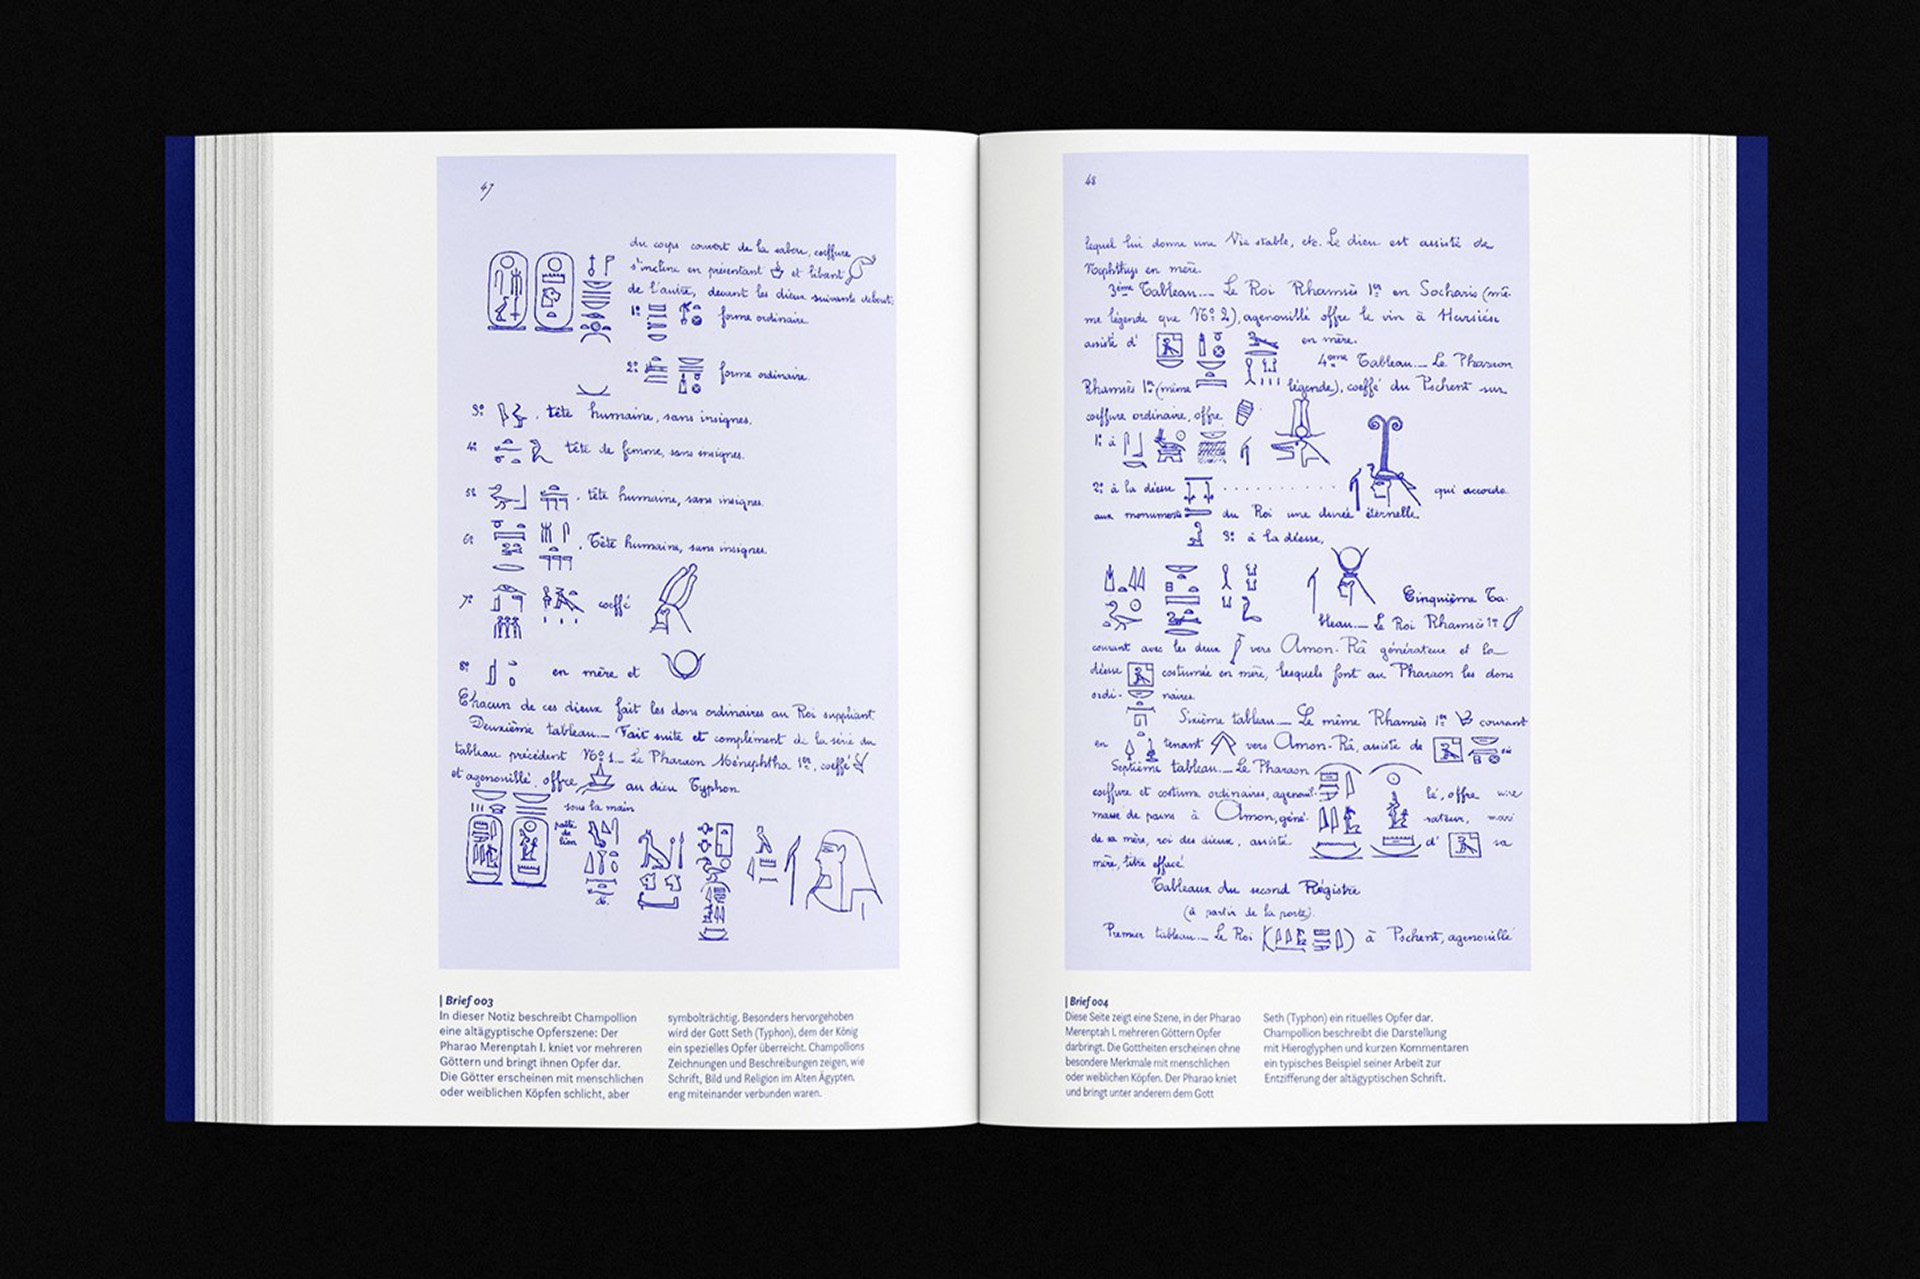 47
du corps couvert de la sabou, coiffure
s'incline en présentant et libant
de l'autre, devant les dieux suivants debout:
1º forme ordinaire.
2º forme ordinaire.
3º . tête humaine, sans insignes.
4º tête de femme, sans insignes.
5º . tête humaine, sans insignes.
6º . Tête humaine, sans insignes.
7º coeffé
8º en mère et
Chacun de ces dieux fait les dons ordinaires au Roi suppliant.
Deuxième tableau.... Fait suite et complément de la série du
tableau précédent Nº 1.... Le Pharaon Ménephtha 1er, coeffé
et agenouillé, offre au dieu Typhon
sous la main
patte
de
lion
| Brief 003
In dieser Notiz beschreibt Champollion
eine altägyptische Opferszene: Der
Pharao Merenptah I. kniet vor mehreren
Göttern und bringt ihnen Opfer dar.
Die Götter erscheinen mit menschlichen
oder weiblichen Köpfen schlicht, aber
symbolträchtig. Besonders hervorgehoben
wird der Gott Seth (Typhon), dem der König
ein spezielles Opfer überreicht. Champollions
Zeichnungen und Beschreibungen zeigen, wie
Schrift, Bild und Religion im Alten Ägypten.
eng miteinander verbunden waren.
48
lequel lui donne une Vie stable, etc. Le dieu est assisté de
Nephthys en mère.
3ème Tableau.... Le Roi Rhamsès 1er en Socharis (mê-
me légende que Nº 2), agenouillé offre le vin à Harsiési
assisté d' en mère.
4ème Tableau.... Le Pharaon
Rhamsès 1er (même légende), coeffé du Pschent sur
coeffure ordinaire, offre
1º à
2º à la déesse . . . . . . . . . . . . qui accorde
aux monuments du Roi une durée éternelle.
3º à la déesse,
Cinquième Ta-
bleau.... Le Roi Rhamsès 1er
courant avec les deux vers Amon-Râ générateur et la
déesse costumée en mère, lesquels font au Pharaon les dons
ordi- naires.
Sixième tableau.... Le même Rhamsès 1er courant
en tenant vers Amon-Râ, assisté de
Septième tableau.... Le Pharaon
coeffure et costume ordinaires, agenouil- lé, offre une
masse de pains à Amon, géné- rateur, mari
de sa mère, roi des dieux, assisté d' sa
mère, titre effacé
Tableaux du second Régistre
(à partir de la porte).
Premier tableau.... Le Roi ( ) à Pschent, agenouillé
| Brief 004
Diese Seite zeigt eine Szene, in der Pharao
Merenptah I. mehreren Göttern Opfer
darbringt. Die Gottheiten erscheinen ohne
besondere Merkmale mit menschlichen
oder weiblichen Köpfen. Der Pharao kniet
und bringt unter anderem dem Gott
Seth (Typhon) ein rituelles Opfer dar.
Champollion beschreibt die Darstellung
mit Hieroglyphen und kurzen Kommentaren
ein typisches Beispiel seiner Arbeit zur
Entzifferung der altägyptischen Schrift.